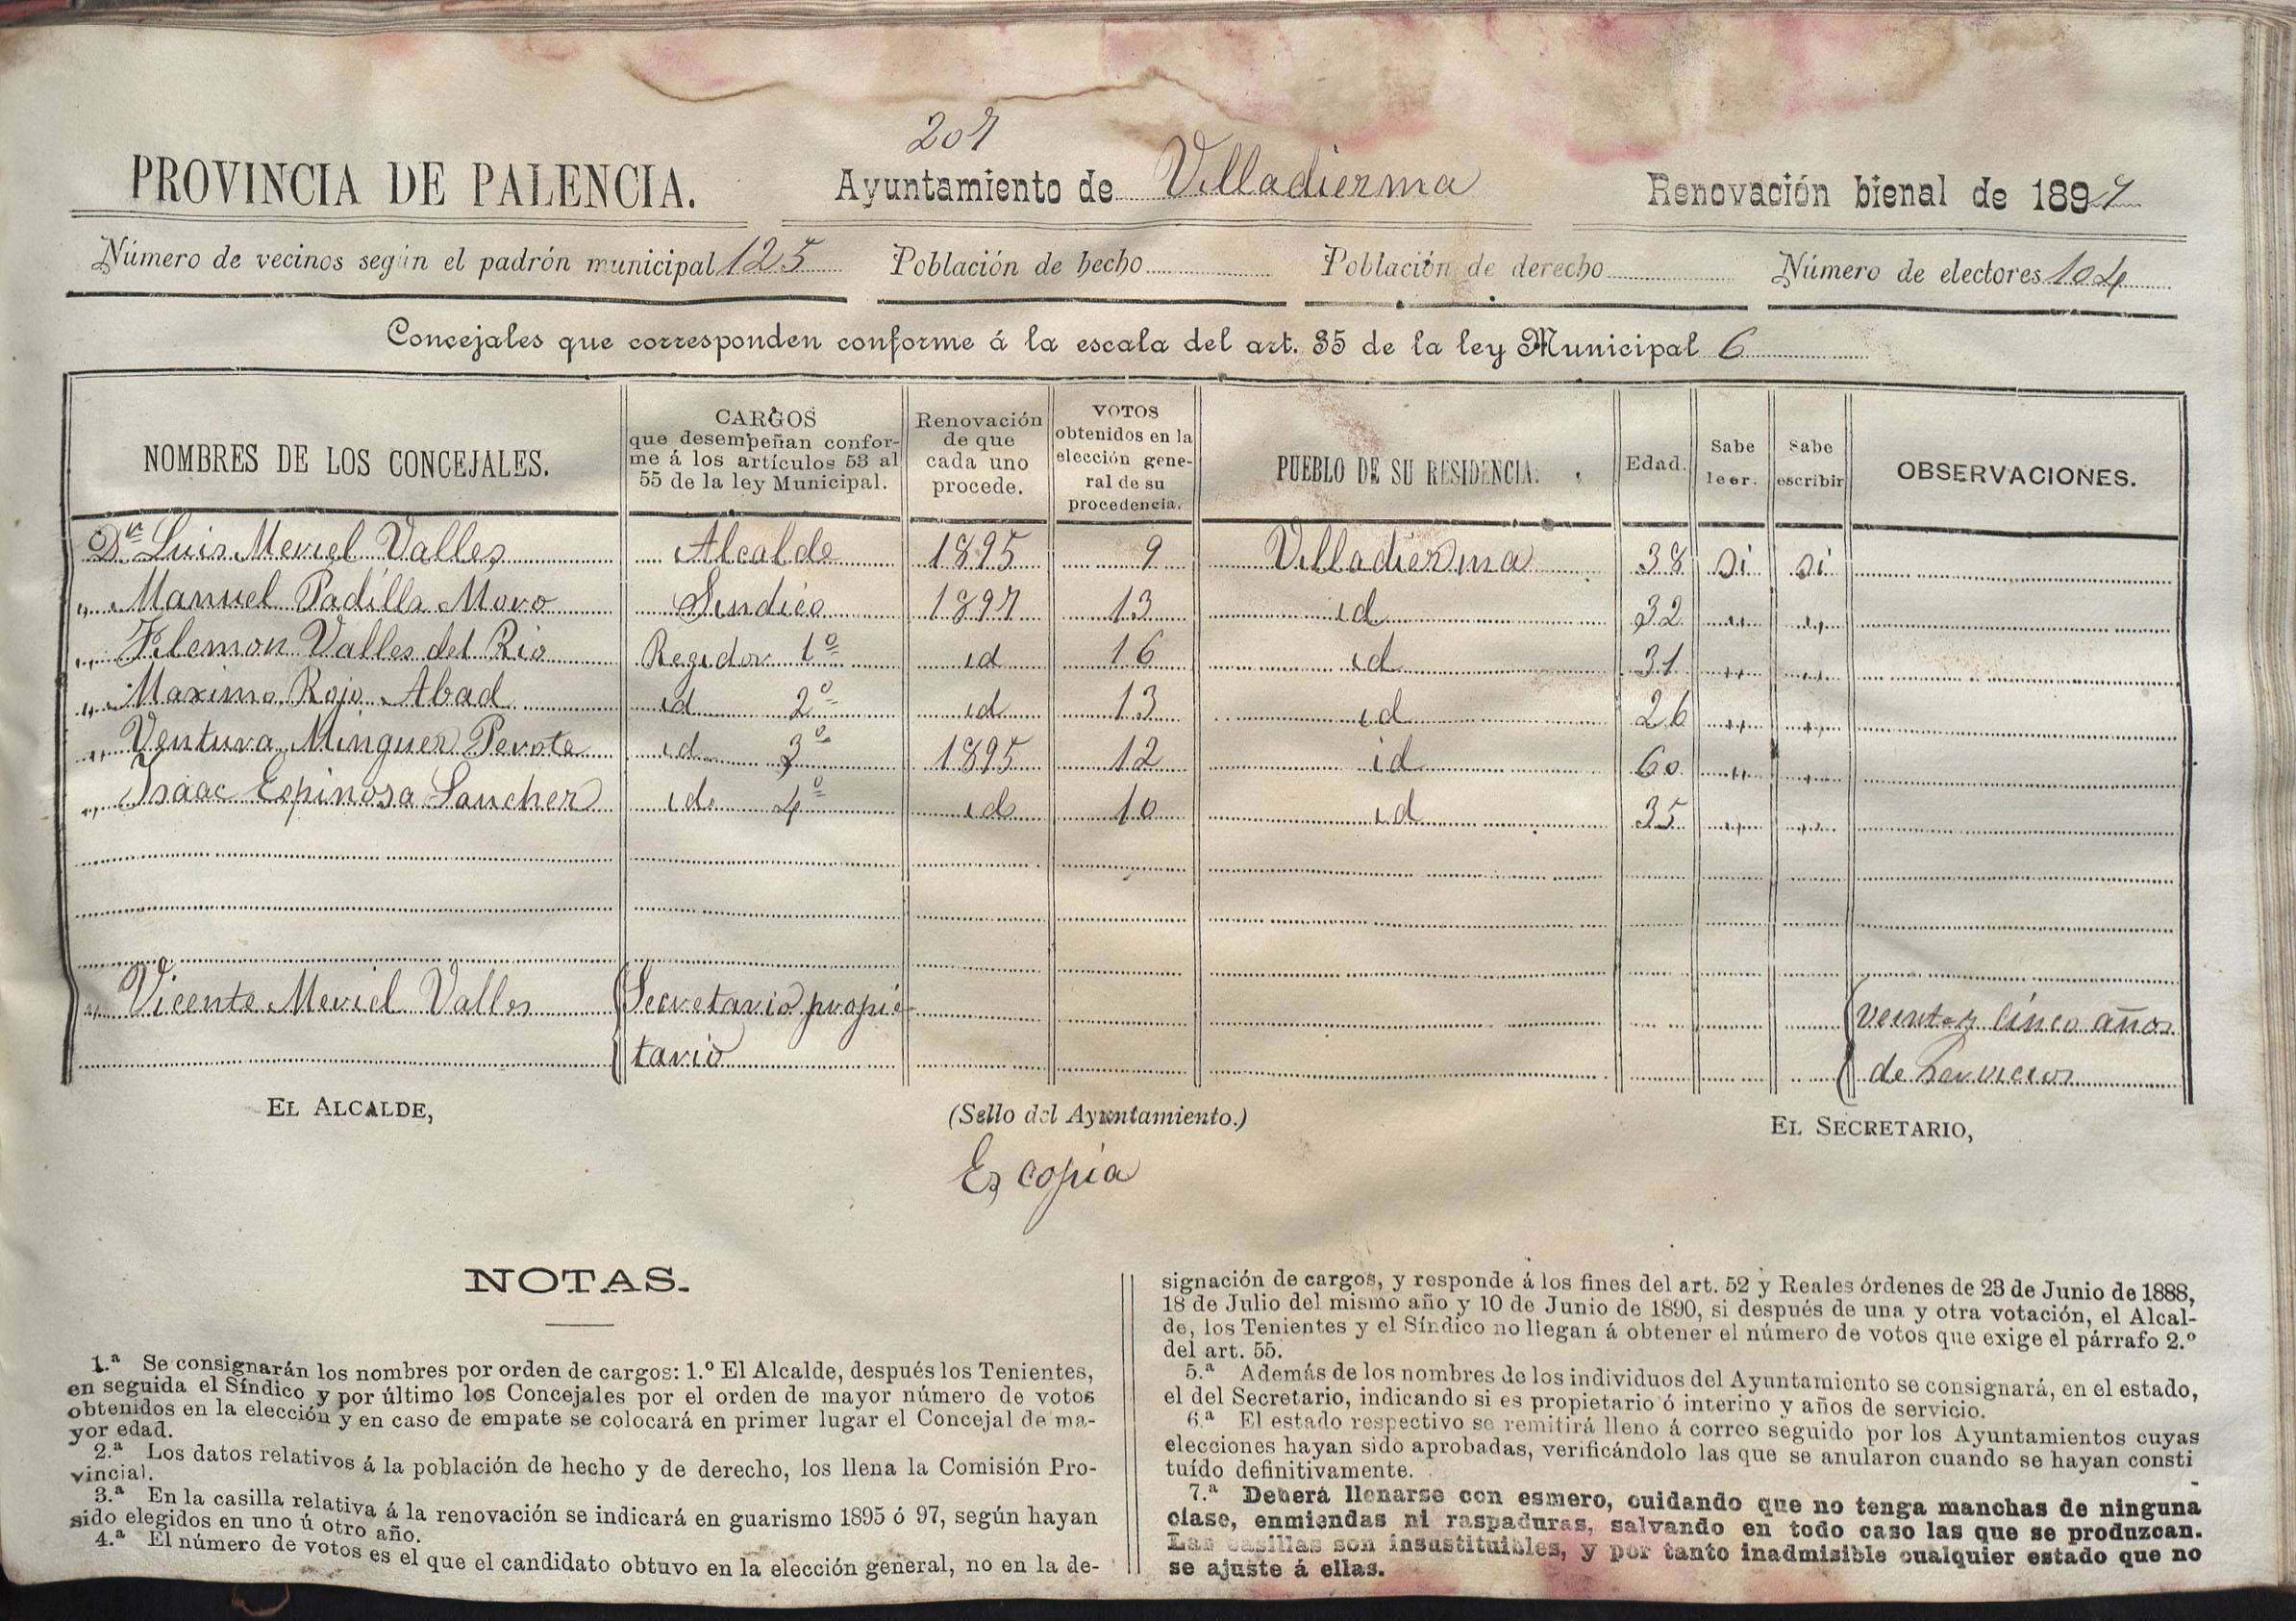 207
PROVINCIA DE PALENCIA. Ayuntamiento de Villadierma Renovación bienal de 1897
Número de vecinos según el padrón municipal 125 Población de hecho Población de derecho Número de electores 104
Concejales que corresponden conforme á la escala del art. 35 de la ley Municipal 6
NOMBRES DE LOS CONCEJALES. CARGOS que desempeñan conforme á los artículos 53 al 55 de la ley Municipal. Renovación de que cada uno procede. VOTOS obtenidos en la elección general de su procedencia. PUEBLO DE SU RESIDENCIA. Edad. Sabe leer. Sabe escribir OBSERVACIONES.
Dn Luis Meriel Valles Alcalde 1895 9 Villadierma 38 si si
" Manuel Padilla Moro Sindico 1897 13 id 32 " "
" Filemon Valles del Rio Regidor 1º id 16 id 31 " "
" Maximo Rojo Abad id 2º id 13 id 26 " "
" Ventura Minguez Perote id 3º 1895 12 id 60 " "
" Isaac Espinosa Sanchez id 4º id 10 id 35 " "
" Vicente Meriel Valles Secretario propie- veinte y cinco años
tario de servicios
EL ALCALDE, (Sello del Ayuntamiento.) EL SECRETARIO,
Es copia
NOTAS.
1.ª Se consignarán los nombres por orden de cargos: 1.º El Alcalde, después los Tenientes,
en seguida el Síndico y por último los Concejales por el orden de mayor número de votos
obtenidos en la elección y en caso de empate se colocará en primer lugar el Concejal de ma-
yor edad.
2.ª Los datos relativos á la población de hecho y de derecho, los llena la Comisión Pro-
vincial.
3.ª En la casilla relativa á la renovación se indicará en guarismo 1895 ó 97, según hayan
sido elegidos en uno ú otro año.
4.ª El número de votos es el que el candidato obtuvo en la elección general, no en la de-
signación de cargos, y responde á los fines del art. 52 y Reales órdenes de 23 de Junio de 1888,
18 de Julio del mismo año y 10 de Junio de 1890, si después de una y otra votación, el Alcal-
de, los Tenientes y el Síndico no llegan á obtener el número de votos que exige el párrafo 2.º
del art. 55.
5.ª Además de los nombres de los individuos del Ayuntamiento se consignará, en el estado,
el del Secretario, indicando si es propietario ó interino y años de servicio.
6.ª El estado respectivo se remitirá lleno á correo seguido por los Ayuntamientos cuyas
elecciones hayan sido aprobadas, verificándolo las que se anularon cuando se hayan consti
tuído definitivamente.
7.ª Deberá llenarse con esmero, cuidando que no tenga manchas de ninguna
clase, enmiendas ni raspaduras, salvando en todo caso las que se produzcan.
Las casillas son insustituibles, y por tanto inadmisible cualquier estado que no
se ajuste á ellas.